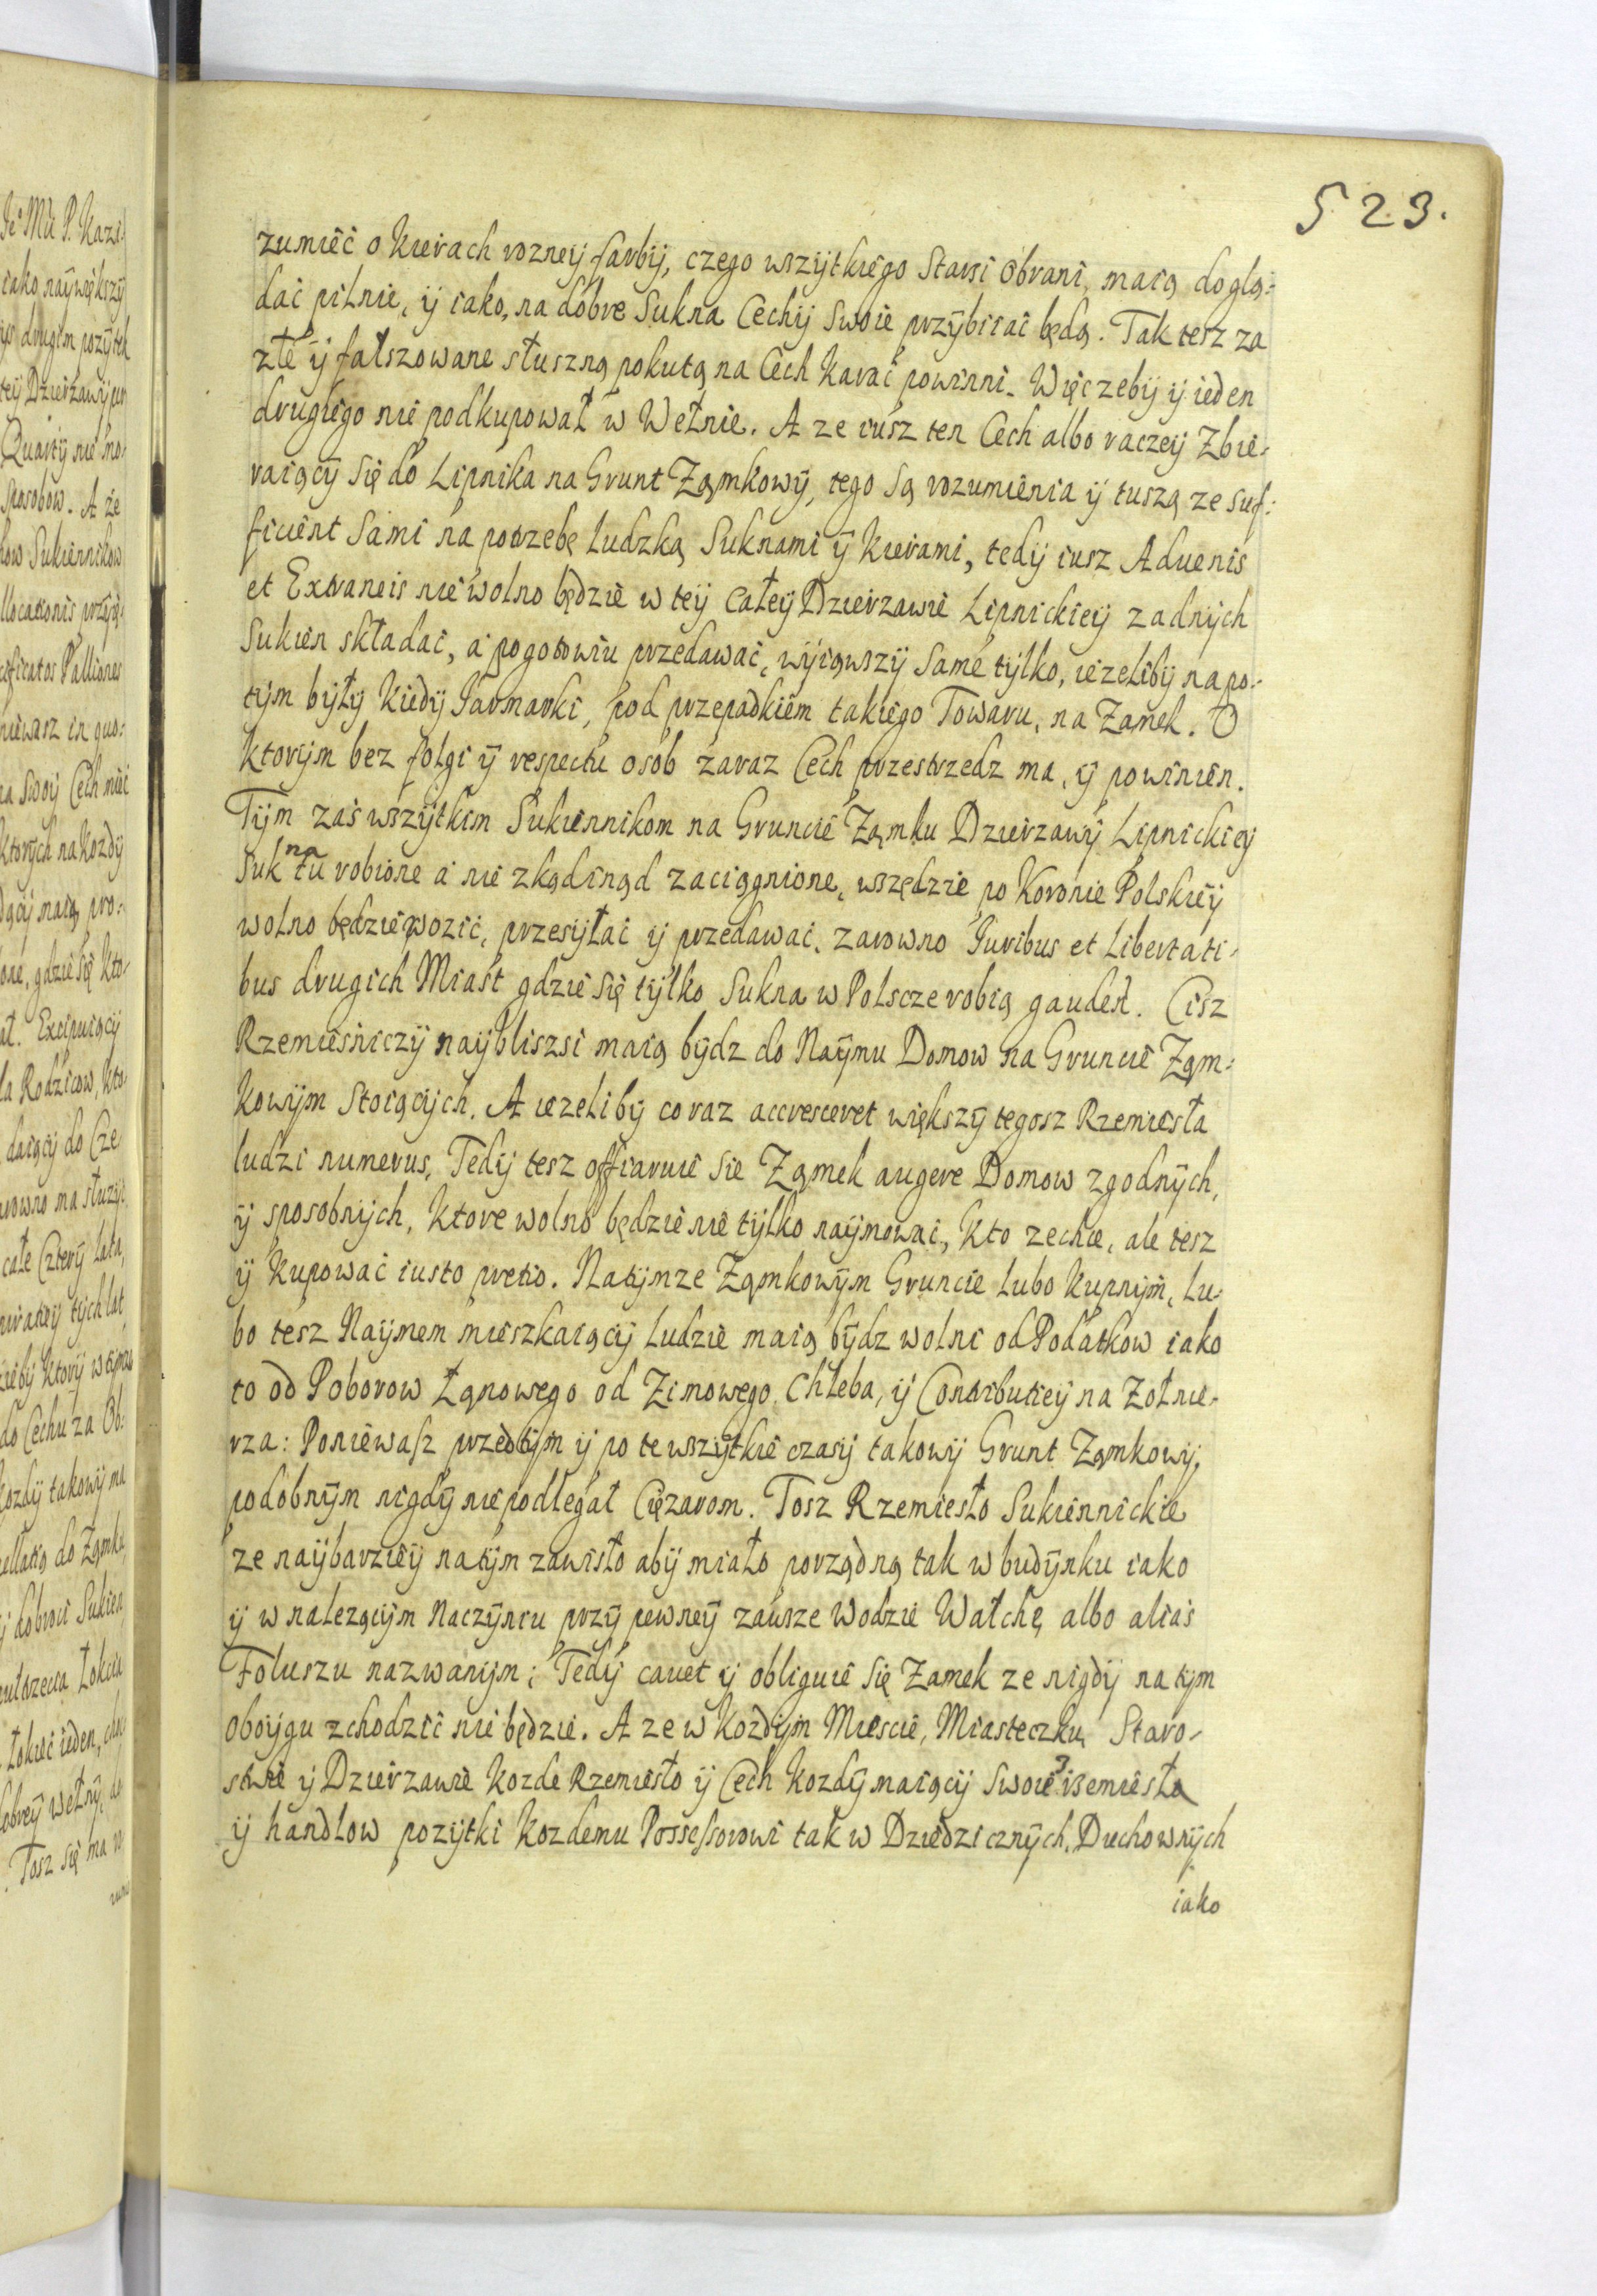 523.
zumieć o Kierach rozneij farbij, czego wszijtkiego Starsi Obrani, maią doglą-
dać pilnie, ij iako, na dobre Sukna Cechij Swoie przÿbiiać będą. Tak tesz za
złe ij fałszowane słuszną pokutą na Cech Karać powinni. Więc zebij ij ieden
drugiego nie podkupował w Wełnie. A ze iusz ten Cech albo raczeij Zbie-
raiącÿ Się do Lipnika na Grunt Ząmkowÿ, tego Są rozumienia ij tuszą ze suf-
ficient Sami na potrzebę Ludzką Suknami ÿ Kierami, tedij iusz Aduenis
et Extraneis nie wolno będzie w teij całeÿ Dzierzawie Lipnickieij zadnÿch
Sukien składać, a pogotowiu przedawać, wÿiąwszÿ Same tÿlko, iezelibÿ napo-
tÿm bÿłÿ Kiedÿ Iarmarki, pod przepadkiem takiego Towaru, na Zamek. O
Ktorÿm bez folgi ÿ respectu osob zaraz Cech przestrzedz ma, ij powinien.
Tÿm zaś wszÿtkim Sukiennikom na Gruncie Ząmku Dzierzawÿ Lipnickieÿ
Sukna tu robione a nie zkądinąd zaciągnione, wszędzie po Koronie Polskieÿ
wolno będzie wozić, przesÿłać ij przedawać, zarowno Iuribus et Libertati-
bus drugich Miast gdzie Się tÿlko Sukna w Polscze robią gauden. Cisz
Rzemieśniczÿ naÿbliszsi maią bÿdz do Naÿmu Domow na Gruncie Ząm-
Kowÿm Stoiącÿch. A iezelibÿ coraz accresceret większÿ tegosz Rzemiesła
ludzi numerus, Tedÿ tesz offiaruie Sie Ząmek augere Domow zgodnÿch,
ÿ sposobnÿch, Ktore wolno będzie nie tÿlko naÿmować, Kto zechce, ale tesz
ÿ Kupować iusto pretio. Natÿmze Ząmkowÿm Gruncie Lubo Kupnÿm, Lu-
bo tesz Naÿmem mieszkaiącÿ Ludzie maią bÿdz wolni od Podatkow iako
to od Poborow Łąnowego od Zimowego Chleba, ÿ Contributieÿ na Zołnie-
rza: Poniewasz przedtÿm ij po te wszÿtkie czasÿ takowÿ Grunt Ząmkowÿ,
podobnÿm nigdÿ nie podlegał Cięzarom. Tosz Rzemiesło Sukiennickie
ze naÿbarzieÿ natÿm zawisło abÿ miało porządną tak w budÿnku iako
ÿ w nalezącÿm Naczÿniu przÿ pewneÿ zawsze Wodzie Wałchę albo alias
Foluszu nazwanÿm; Tedÿ cauet ÿ obliguie Się Zamek ze nigdÿ na tÿm
oboÿgu zchodzić nie będzie. A ze w Kozdÿm Mieście, Miasteczku Staro-
stwie ij Dzierzawie Kozde Rzemiesło ij Cech Kozdÿ maiącÿ Swoie Rzemiesła
ÿ handlow pozÿtki Kozdemu Possessorowi tak w Dziedzicznÿch, Duchownÿch
iako